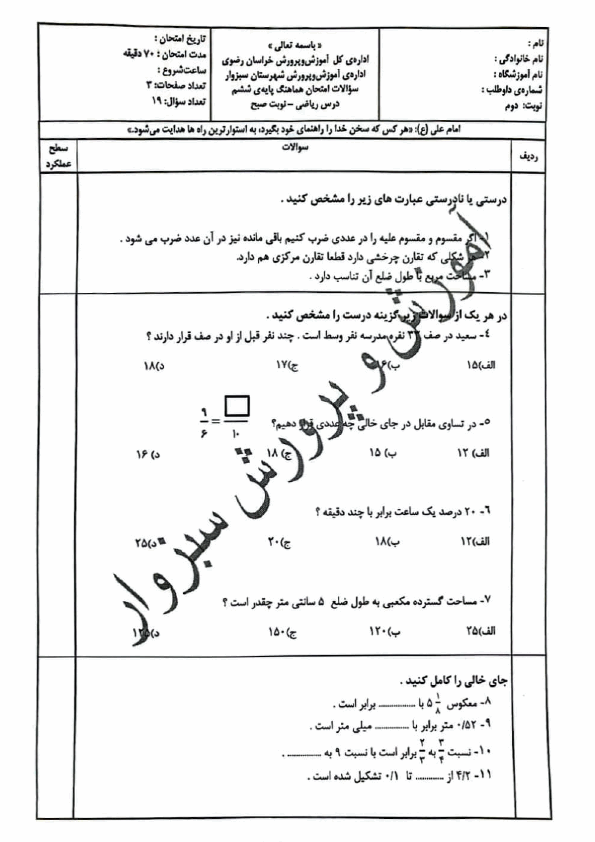 نام :
نام خانوادگی :
نام آموزشگاه :
شماره‌ی داوطلب :
نوبت: دوم
« باسمه تعالی »
اداره‌ی کل آموزش‌وپرورش خراسان رضوی
اداره‌ی آموزش‌وپرورش شهرستان سبزوار
سؤالات امتحان هماهنگ پایه‌ی ششم
درس ریاضی – نوبت صبح
تاریخ امتحان :
مدت امتحان : ۷۰ دقیقه
ساعت‌شروع :
تعداد صفحات: ۳
تعداد سؤال: ۱۹
امام علی (ع): «هر کس که سخن خدا را راهنمای خود بگیرد، به استوارترین راه ها هدایت می‌شود.»
ردیف
سوالات
سطح عملکرد
درستی یا نادرستی عبارت های زیر را مشخص کنید .
۱- اگر مقسوم و مقسوم علیه را در عددی ضرب کنیم باقی مانده نیز در آن عدد ضرب می شود .
۲- هر شکلی که تقارن چرخشی دارد قطعا تقارن مرکزی هم دارد.
۳- مساحت مربع با طول ضلع آن تناسب دارد .
در هر یک از سوالات زیر گزینه درست را مشخص کنید .
۴- سعید در صف ۳۳ نفره مدرسه نفر وسط است . چند نفر قبل از او در صف قرار دارند ؟
الف)۱۵ ب)۱۶ ج)۱۷ د)۱۸
۵- در تساوی مقابل در جای خالی چه عددی قرار دهیم؟ ۹/۶ = □/۱۰
الف) ۱۲ ب) ۱۵ ج) ۱۸ د) ۱۶
۶- ۲۰ درصد یک ساعت برابر با چند دقیقه ؟
الف)۱۲ ب)۱۸ ج)۲۰ د)۲۵
۷- مساحت گسترده مکعبی به طول ضلع ۵ سانتی متر چقدر است ؟
الف)۲۵ ب)۱۲۰ ج)۱۵۰ د)۱۲۵
جای خالی را کامل کنید .
۸- معکوس ۵ ۱/۸ با .............. برابر است .
۹- ۰/۵۲ متر برابر با .............. میلی متر است .
۱۰- نسبت ۳/۴ به ۲/۳ برابر است با نسبت ۹ به .............. .
۱۱- ۴/۲ از ............ تا ۰/۱ تشکیل شده است .
آموزش و پرورش سبزوار